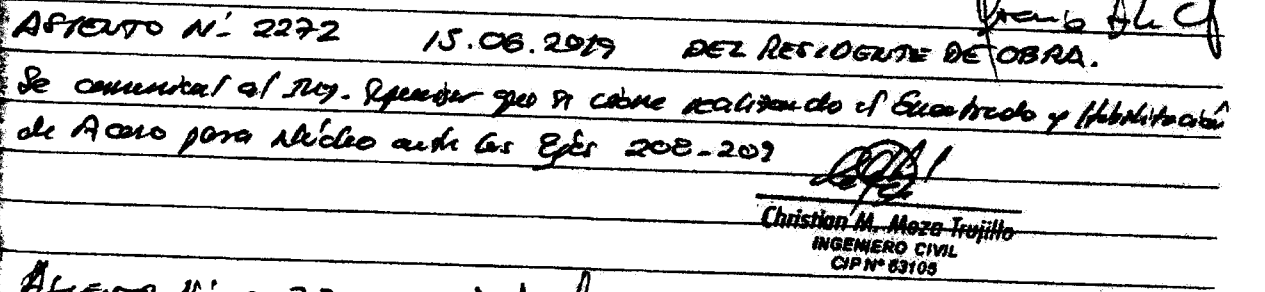 ASIENTO N°- 2272 15.06.2019 DEL RESIDENTE DE OBRA.
Se comunica al Ing. Supervisor que se viene realizando el Encofrado y Habilitación
de Acero para Núcleo entre los Ejes 208-209
Christian M. Meza Trujillo
INGENIERO CIVIL
CIP N° 63105
ASIENTO N°